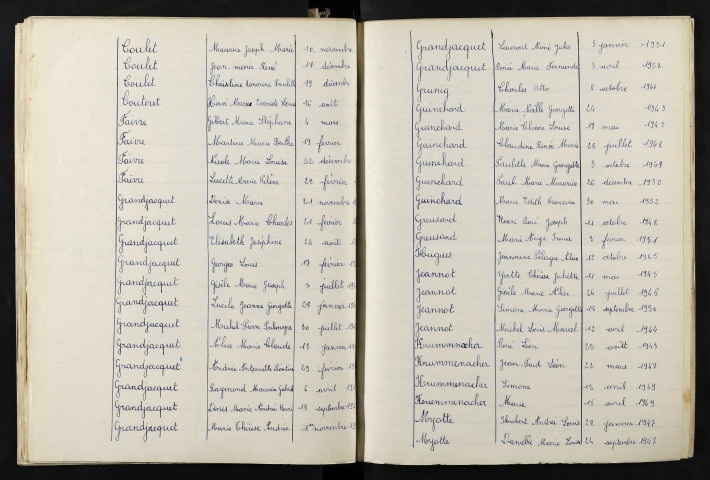 Coulet Maurice Joseph Marie 10 novembre
Coulet Jean marie René 17 décembre
Coulet Christine 19 décembre
Coutoret Marie Louis 16 août
Faivre Gilbert Marie Stéphane 4 mars
Faivre Martine Marie Berthe 19 février
Faivre Nicole Marie Louise 22 décembre
Faivre Lucette Marie Hélène 22 février
Grandjacquet Denise Marie 21 novembre
Grandjacquet Louis Marie Charles 21 février
Grandjacquet Elisabeth Joséphine 24 août
Grandjacquet Georges Louis 17 février
Grandjacquet Gisèle Marie Joseph 3 juillet
Grandjacquet Lucile Jeanne Georgette 28 janvier
Grandjacquet Michel Pierre 30 juillet
Grandjacquet Alice Marie Claude 13 janvier
Grandjacquet Andrée Antoinette 29 février
Grandjacquet Raymond Maurice 6 avril
Grandjacquet Denis Marie André Henri 18 septembre
Grandjacquet Marie Thérèse Andrée 1er novembre
Grandjacquet Laurent Aimé Jules 5 janvier 1951
Grandjacquet Renée Marie Fernande 3 avril 1952
Grunig Charles Otto 8 octobre 1941
Guinchard Marie Noëlle Georgette 24 1943
Guinchard Marie Louise 19 mai 1945
Guinchard Claudine Renée Marie 26 juillet 1948
Guinchard Paulette Marie Georgette 3 octobre 1949
Guinchard Paul Marie Maurice 26 décembre 1950
Guinchard Marie Edith Francine 30 mai 1952
Greusard Henri René Joseph 11 octobre 1948
Greusard Marie Ange Irma 3 février 1951
Hugues Jeannine Pélagie Alice 12 octobre 1945
Jeannot Yvette Thérèse Juliette 11 mai 1943
Jeannot Gisèle Marie Alice 24 juillet 1946
Jeannot Simone Marie Georgette 14 septembre 1950
Jeannot Michel Louis Marcel 12 avril 1944
Krummenacher René Léon 25 août 1943
Krummenacher Jean Paul Léon 22 mars 1947
Krummenacher Simone 15 avril 1949
Krummenacher Marie 15 avril 1949
Myotte Hubert André Louis 28 janvier 1947
Myotte Danielle Marie Louise 24 septembre 1941